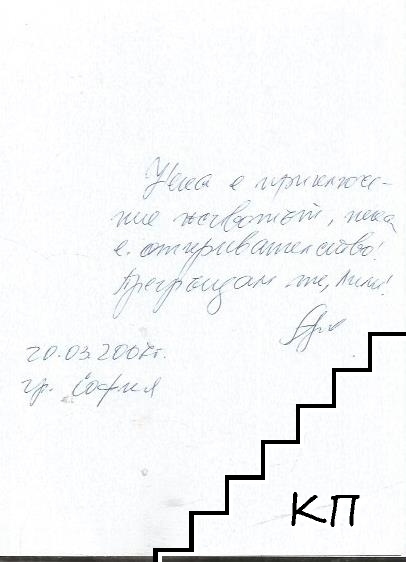 Нека е приключе-
ние животът, нека
е откривателство!
Прегръщам те, Лили!
20.03.2007г.
гр. София
КП